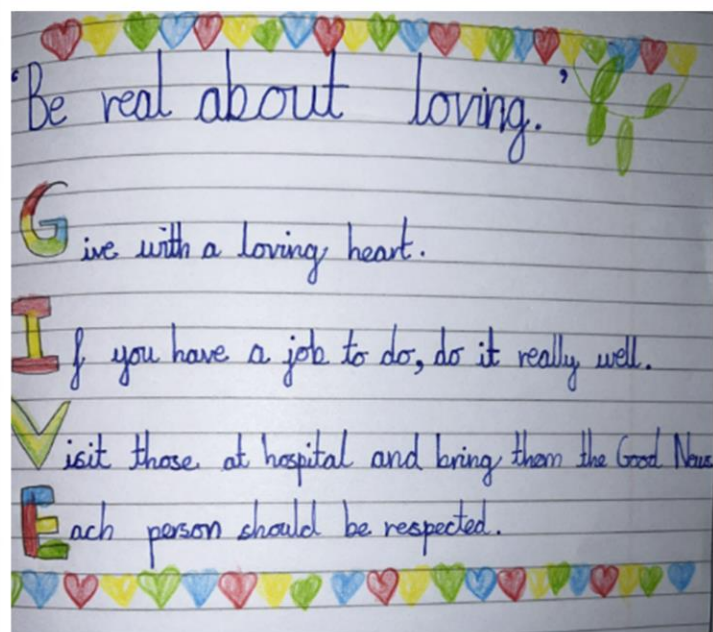 'Be real about loving.'
Give with a loving heart.
If you have a job to do, do it really well.
Visit those at hospital and bring them the Good News
Each person should be respected.